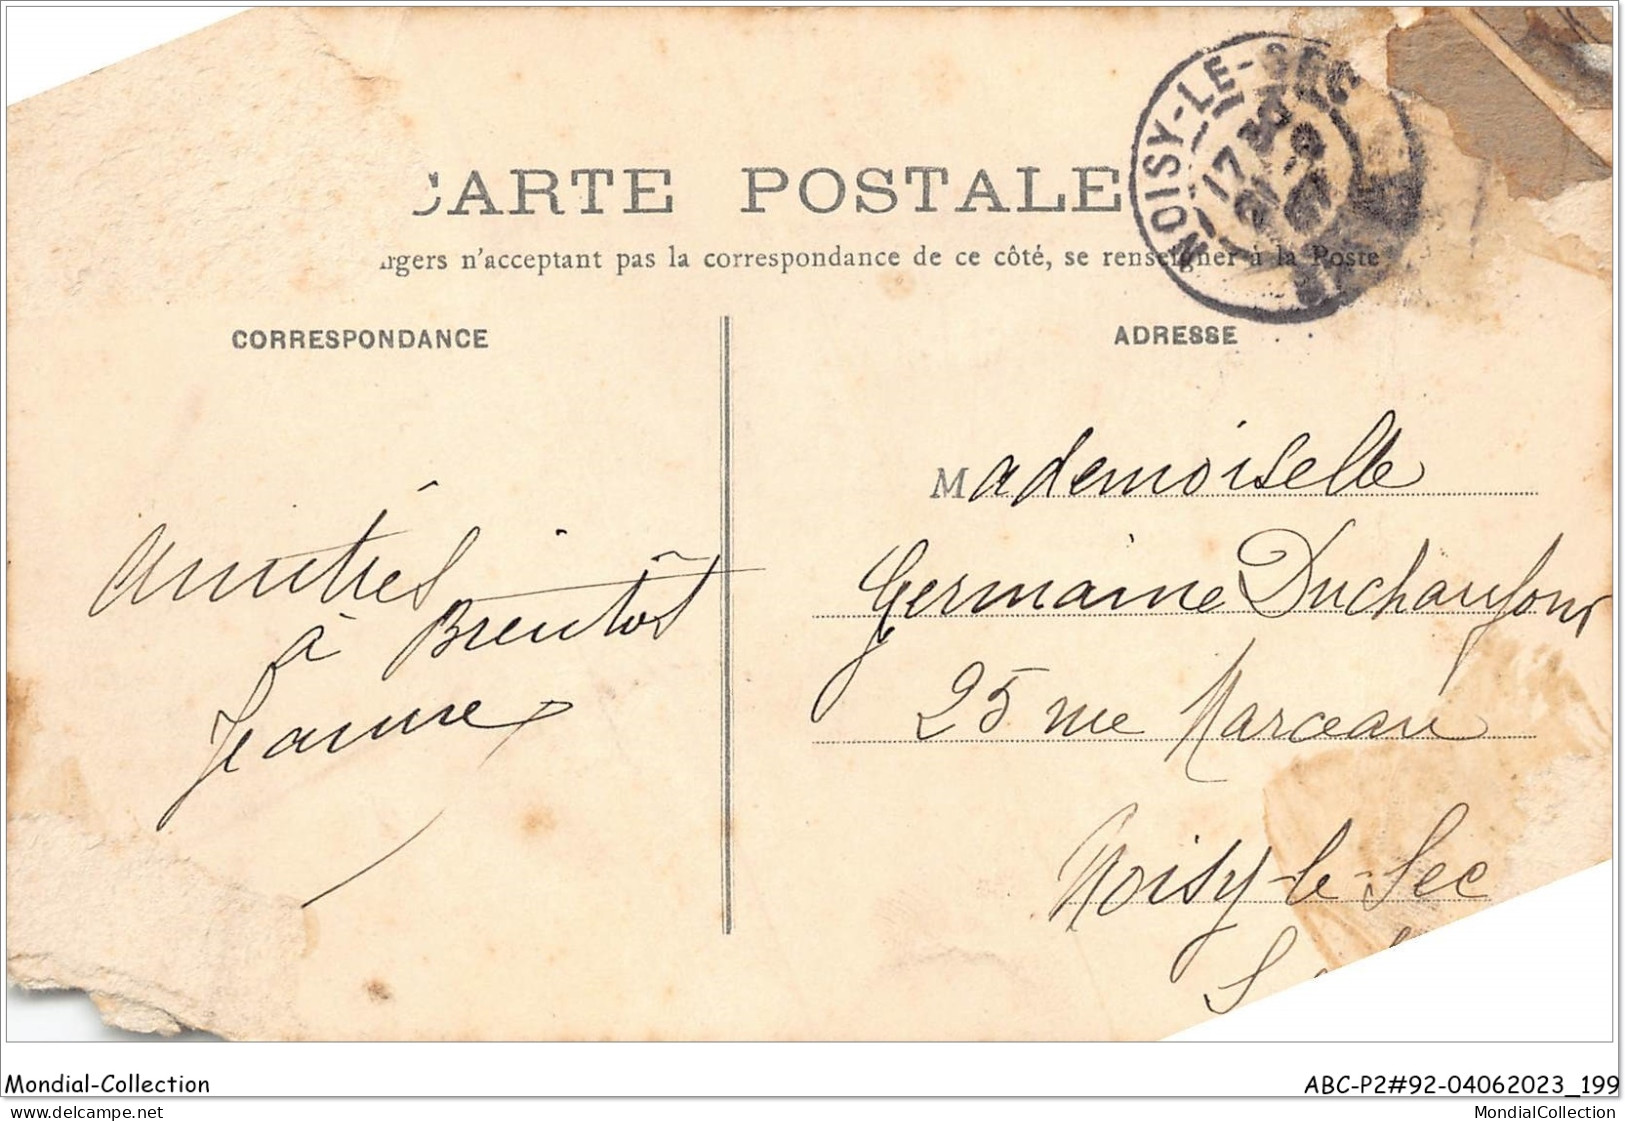 CARTE POSTALE
rgers n'acceptant pas la correspondance de ce côté, se renseigner à la Poste
NOISY-LE-SEC
17 30
21 9
07
CORRESPONDANCE
ADRESSE
Amitiés
à Bientôt
Jeanne
Mademoiselle
Germaine Duchaufour
25 rue Marceau
Noisy-le-Sec
S
Mondial-Collection
ABC-P2#92-04062023_199
delcampe.net
MondialCollection